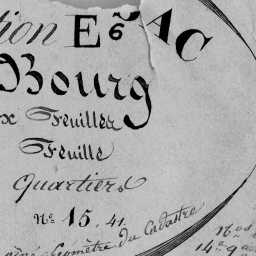 tion E 6 AC
Bourg
x Feuilles
Feuille
Quartiers
No 15. 41.
Géomètre du Cadastre
14